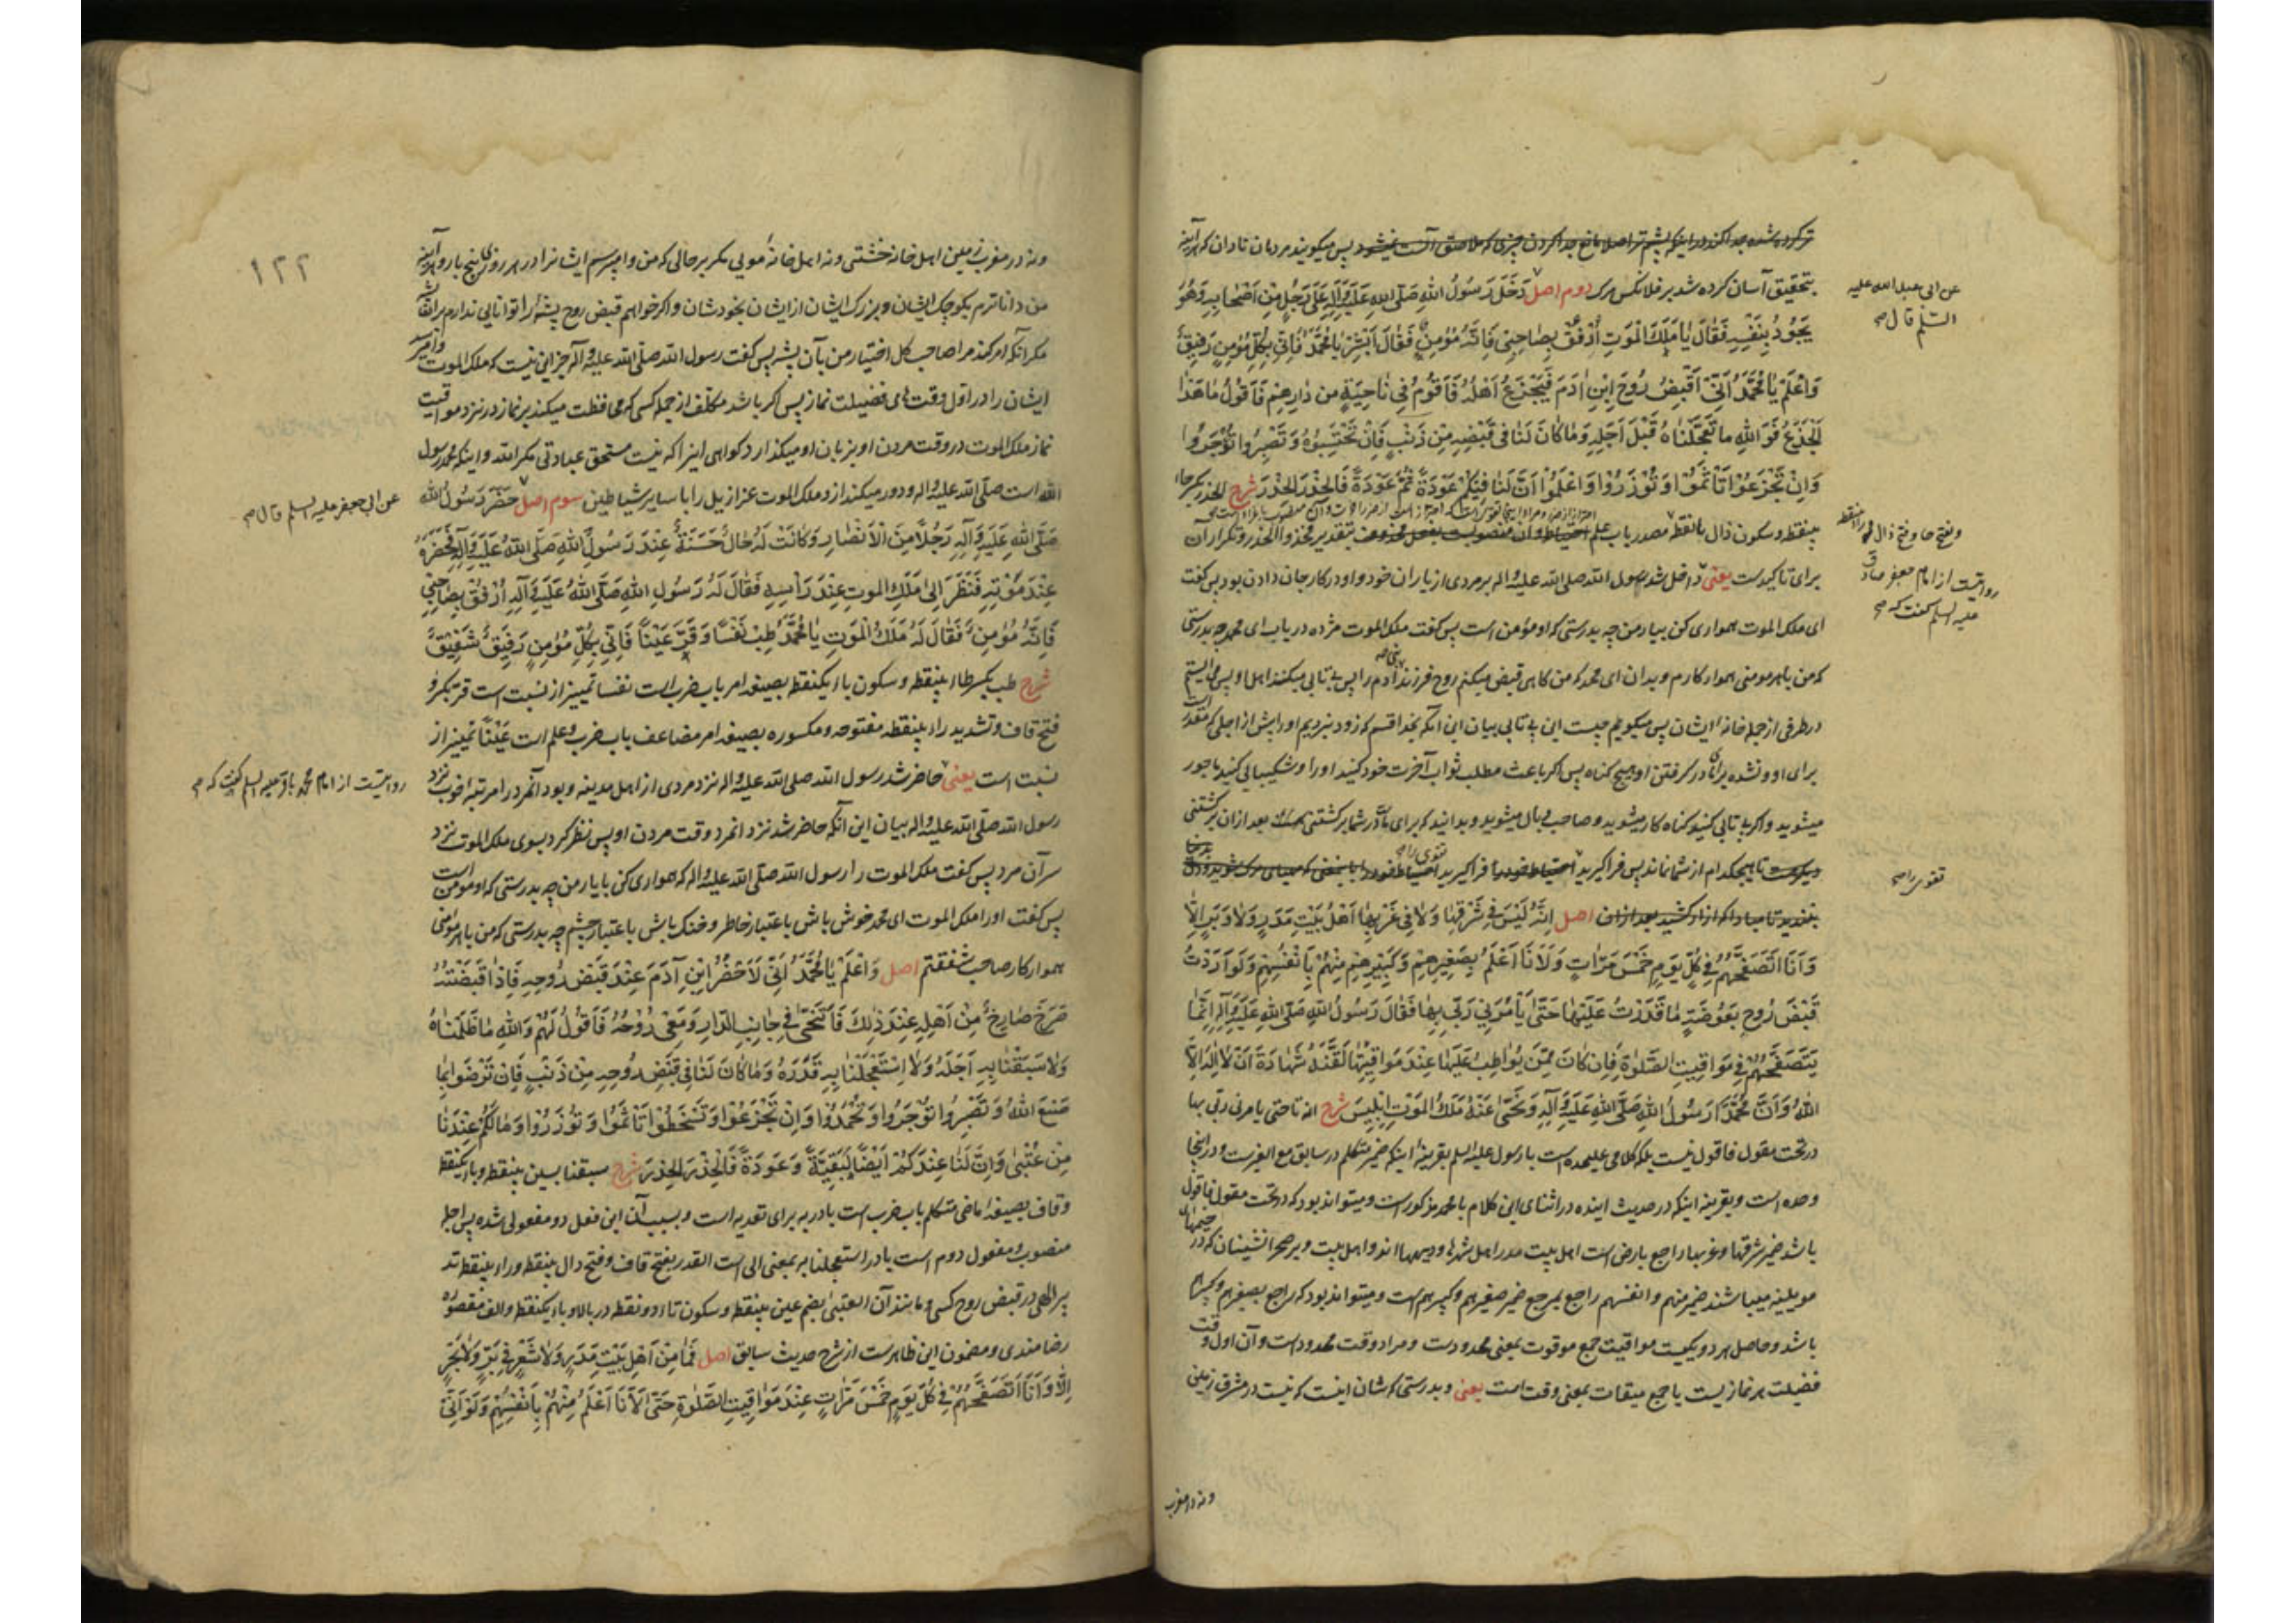 ترکرده شده جدا کند در اینکه پشم تر اصلا مانع جدا کردن چیزی که ملاصق آنست نیشود پس میکویند مردمان نادان که هرآینه
بتحقیق آسان کرده شد بر فلانکس مرک دوم اصل دَخَلَ رَسُولُ اللهِ صَلَّی اللهِ عَلَیْهِ وَآلِهِ عَلَی رَجُلٍ مِنْ اَصْحَابِهِ وَهُوَ
عن ابی عبد الله علیه
السّلم قال صح
یَجُودُ بِنَفْسِهِ فَقَالَ یَا مَلَکَ الْمَوْتِ اُرْفُقْ بِصَاحِبِی فَاِنَّهُ مُؤْمِنٌ فَقَالَ اَبْشِرْ یَا مُحَمَّدُ فَاِنِّی بِکُلِّ مُؤْمِنٍ رَفِیقٌ
وَاعْلَمْ یَا مُحَمَّدُ اَنِّی اَقْبِضُ رُوحَ ابْنِ اٰدَمَ فَیَجْزَعُ اَهْلُهُ فَاَقُومُ فِی نَاحِیَةٍ مِن دَارِهِمْ فَاَقُولُ مَا هَذَا
الْجَزَعُ فَوَ اللهِ مَا تَعَجَّلْنَاهُ قَبْلَ اَجَلِهِ وَمَا کَانَ لَنَا فِی قَبْضِهِ مِنْ ذَنْبٍ فَاِنْ تَحْتَسِبُوهُ وَتَصْبِرُوا تُؤْجَرُوا
وَاِنْ تَجْزَعُوْا تَأْثَمُوْا وَتُوْزَرُوْا وَاعْلَمُوْا اَنَّ لَنَا فِیْکُمْ عَوْدَةً ثُمَّ عَوْدَةً فَالْحَذَرَ الْحَذَرَ شرح الحذر بکسر حاء
بینقطه و سکون ذال بانقطه مصدر باب علم احتیاط و آن منصوبست بفعل محذوف بتقدیر خذوا الحذر و تکرار آن
و بفتح حا و فتح ذال
برای تاکیدست یعنی داخل شد رسول الله صلی الله علیه واله بر مردی از یاران خود و او در کار جان دادن بود پس کفت
روایتست از امام جعفر صادق
علیه السلم کفت که صح
ای ملک الموت همواری کن بیار من چه بدرستی که او مؤمن است پس کفت ملک الموت مژده دریاب ای محمد چه بدرستی
که من با هر مومنی هموارکارم و بدان ای محمد که من کاهی قبض میکنم روح فرزند آدم را پس بی تابی میکنند اهل او پس می ایستم
در طرفی از جمله خانه ایشان پس میکویم چیست این بی تابی بیان این آنکه بخدا قسم که زود نبردیم او را پیش از اجلی که مقدر است
برای او و نشده برما در کرفتن او هیچ کناه پس اکر باعث مطلب ثواب آخرت خود کنید او را و شکیبایی کنید ماجور
میشوید و اکر بی تابی کنید کناه کار میشوید و صاحب وبال میشوید و بدانید که برای ما در شما برکشتنی هست بعد از آن برکشتنی
دیکرست تا هیچکدام از شما نماند پس فراکیرید احتیاط خود را فراکیرید احتیاط خود را
تقوی را صح
اصل اِنَّهُ لَیْسَ فِی شَرْقِهَا وَلَا فِی غَرْبِهَا اَهْلُ بَیْتِ مَدَرٍ وَلَا وَبَرٍ اِلَّا
وَاَنَا اَتَصَفَّحُهُمْ فِی کُلِّ یَوْمٍ خَمْسَ مَرَّاتٍ وَلَاَنَا اَعْلَمُ بِصَغِیْرِهِمْ وَکَبِیْرِهِمْ مِنْهُمْ بِاَنْفُسِهِمْ وَلَوْ اَرَدْتُ
قَبْضَ رُوحِ بَعُوضَةٍ مَا قَدَرْتُ عَلَیْهَا حَتَّی یَأْمُرَنِی رَبِّی بِهَا فَقَالَ رَسُولُ اللهِ صَلَّی اللهِ عَلَیْهِ وَآلِهِ اِنَّمَا
یَتَصَفَّحُهُمْ فِی مَوَاقِیتِ الصَّلٰوةِ فَاِنْ کَانَ مِمَّنْ یُوَاظِبُ عَلَیْهَا عِنْدَ مَوَاقِیْتِهَا لَقَّنَهُ شَهَادَةَ اَنْ لَا اِلٰهَ اِلَّا
اللهُ وَاَنَّ مُحَمَّدًا رَسُوْلُ اللهِ صَلَّی اللهِ عَلَیْهِ وَآلِهِ وَنَحَّی عَنْهُ مَلَکُ الْمَوْتِ اِبْلِیسَ شرح انه تا حتی یامرنی ربی بها
در تحت مقول فاقول نیست بلکه کلامی علیحده است با رسول علیه السلم بقرینه اینکه ضمیر متکلم در سابق مع الغیرست و در اینجا
وحده است و بقرینه اینکه در حدیث اینده در اثنای این کلام یا محمد مذکورست و میتواند بود که در تحت مقول فاقول
باشد ضمیر شرقها و غربها راجع بارض است اهل بیت مدر اهل شهرها و دیهها اند و اهل بیت وبر صحرانشینان که در خیمهای
مویینه میباشند ضمیر منهم و انفسهم راجع بمرجع ضمیر صغیرهم و کبیرهم است و میتواند بود که راجع بصغیرهم و کبیرهم
باشد و حاصل هر دو یکیست مواقیت جمع موقوت بمعنی محدودست و مراد وقت محدودست و آن اول وقت
فضیلت هر نمازیست یا جمع میقات بمعنی وقت است یعنی و بدرستی که شان اینست که نیست در مشرق زمین
ونه در مغرب
١٢٢
ونه در مغرب زمین اهل خانه خشتی و نه اهل خانه مویی مکر بر حالی که من وامیرسم ایشانرا در هر روزی پنج بار و هرآینه
من داناترم بکوچک ایشان و بزرک ایشان از ایشان بخودشان و اکر خواهم قبض روح پشه را توانایی ندارم بر آن
مکر آنکه امر کند مرا صاحب کل اختیار من بآن پشه پس کفت رسول الله صلی الله علیه وآله جز این نیست که ملک الموت وامیرسد
ایشان را در اول وقت های فضیلت نماز پس اکر باشد مکلف از جمله کسی که محافظت میکند بر نماز در نزد مواقیت
نماز ملک الموت در وقت مردن او بزبان او میکذارد کواهی اینرا که نیست مستحق عبادتی مکر الله و اینکه محمد رسول
الله است صلی الله علیه واله و دور میکند از و ملک الموت عزازیل را با سایر شیاطین سوم اصل حَضَرَ رَسُوْلُ اللهِ
عن ابی جعفر علیه السلم قال صح
صَلَّی اللهِ عَلَیْهِ وَآلِهِ رَجُلًا مِنَ الْاَنْصَارِ وَکَانَتْ لَهُ حَالٌ حَسَنَةٌ عِنْدَ رَسُوْلِ اللهِ صَلَّی اللهُ عَلَیْهِ وَآلِهِ فَحَضَرَهُ
عِنْدَ مَوْتِهِ فَنَظَرَ اِلٰی مَلَکِ الْمَوتِ عِنْدَ رَأْسِهِ فَقَالَ لَهُ رَسُوْلُ اللهِ صَلَّی اللهُ عَلَیْهِ وَآلِهِ اُرْفُقْ بِصَاحِبِی
فَاِنَّهُ مُؤْمِنٌ فَقَالَ لَهُ مَلَکُ الْمَوْتِ یَا مُحَمَّدُ طِبْ نَفْسًا وَقَرَّ عَیْنًا فَاِنِّی بِکُلِّ مُؤْمِنٍ رَفِیقٌ شَفِیْقٌ
شرح طب بکسر طاء بینقطه و سکون باء یکنقطه بصیغه امر باب ضرب است نفسا تمییز از نسبت است قر بکسر و
فتح قاف و تشدید راء بینقطه مفتوحه و مکسوره بصیغه امر مضاعف باب ضرب و علم است عَیْنًا تمییز از
نسبت است یعنی حاضر شد رسول الله صلی الله علیه واله نزد مردی از اهل مدینه و بود آنمرد را مرتبه خوب نزد
روایتست از امام محمد باقر علیه السلم کفت که صح
رسول الله صلی الله علیه واله بیان این آنکه حاضر شد نزد انمرد وقت مردن او پس نظر کرد بسوی ملک الموت نزد
سر آن مرد پس کفت ملک الموت را رسول الله صلی الله علیه واله که همواری کن با یار من چه بدرستی که او مومن است
پس کفت او را ملک الموت ای محمد خوش باش باعتبار خاطر و خنک باش باعتبار چشم چه بدرستی که من با هر مومنی
هموارکار صاحب شفقتم اصل وَاعْلَمْ یَا مُحَمَّدُ اَنِّی لَاَحْضُرُ ابْنَ آدَمَ عِنْدَ قَبْضِ رُوحِهِ فَاِذَا قَبَضْتُهُ
صَرَخَ صَارِخٌ مِنْ اَهْلِهِ عِنْدَ ذٰلِکَ فَاَتَنَحَّی فِی جَانِبِ الدَّارِ وَمَعِی رُوْحُهُ فَاَقُوْلُ لَهُمْ وَاللهِ مَا ظَلَمْنَاهُ
وَلَا سَبَقْنَا بِهِ اَجَلَهُ وَلَا اسْتَعْجَلْنَا بِهِ قَدَرَهُ وَمَا کَانَ لَنَا فِی قَبْضِ رُوحِهِ مِنْ ذَنْبٍ فَاِنْ تَرْضَوْا بِمَا
صَنَعَ اللهُ وَتَصْبِرُوا تُؤْجَرُوا وَتُحْمَدُوْا وَاِنْ تَجْزَعُوْا وَتَسْخَطُوْا تَأْثَمُوْا وَتُوْزَرُوْا وَمَا لَکُمْ عِنْدَنَا
مِنْ عُتْبٰی وَاِنَّ لَنَا عِنْدَکُمْ اَیْضًا لَبَقِیَّةً وَعَوْدَةً فَالْحَذَرَ الْحَذَرَ شرح سبقنا بسین بینقطه و باء یکنقطه
و قاف بصیغه ماضی متکلم باب ضرب است با در به برای تعدیه است و بسبب آن این فعل دو مفعولی شده پس اجله
منصوب و مفعول دوم است با در استعجلنا به بمعنی الی است القدر بفتح قاف و فتح دال بینقطه و راء بینقطه تد
بیر الهی در قبض روح کسی و مانند آن العتبی بضم عین بینقطه و سکون تاء دو نقطه در بالا و باء یکنقطه و الف مقصوره
رضامندی و مضمون این ظاهرست از شرح حدیث سابق اصل فَمَا مِنْ اَهْلِ بَیْتِ مَدَرٍ وَلَا شَعْرٍ فِی بَرٍّ وَلَا بَحْرٍ
اِلَّا وَاَنَا اَتَصَفَّحُهُمْ فِی کُلِّ یَوْمٍ خَمْسَ مَرَّاتٍ عِنْدَ مَوَاقِیتِ الصَّلٰوةِ حَتَّی لَاَنَا اَعْلَمُ مِنْهُمْ بِاَنْفُسِهِمْ وَلَوْ اَنِّی